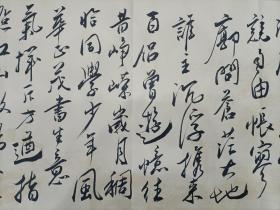 競自由悵寥
廓問蒼茫大地
誰主沉浮攜来
百侣曾遊憶往
昔崢嶸歲月稠
恰同學少年風
華正茂書生意
氣揮斥方遒指
江山